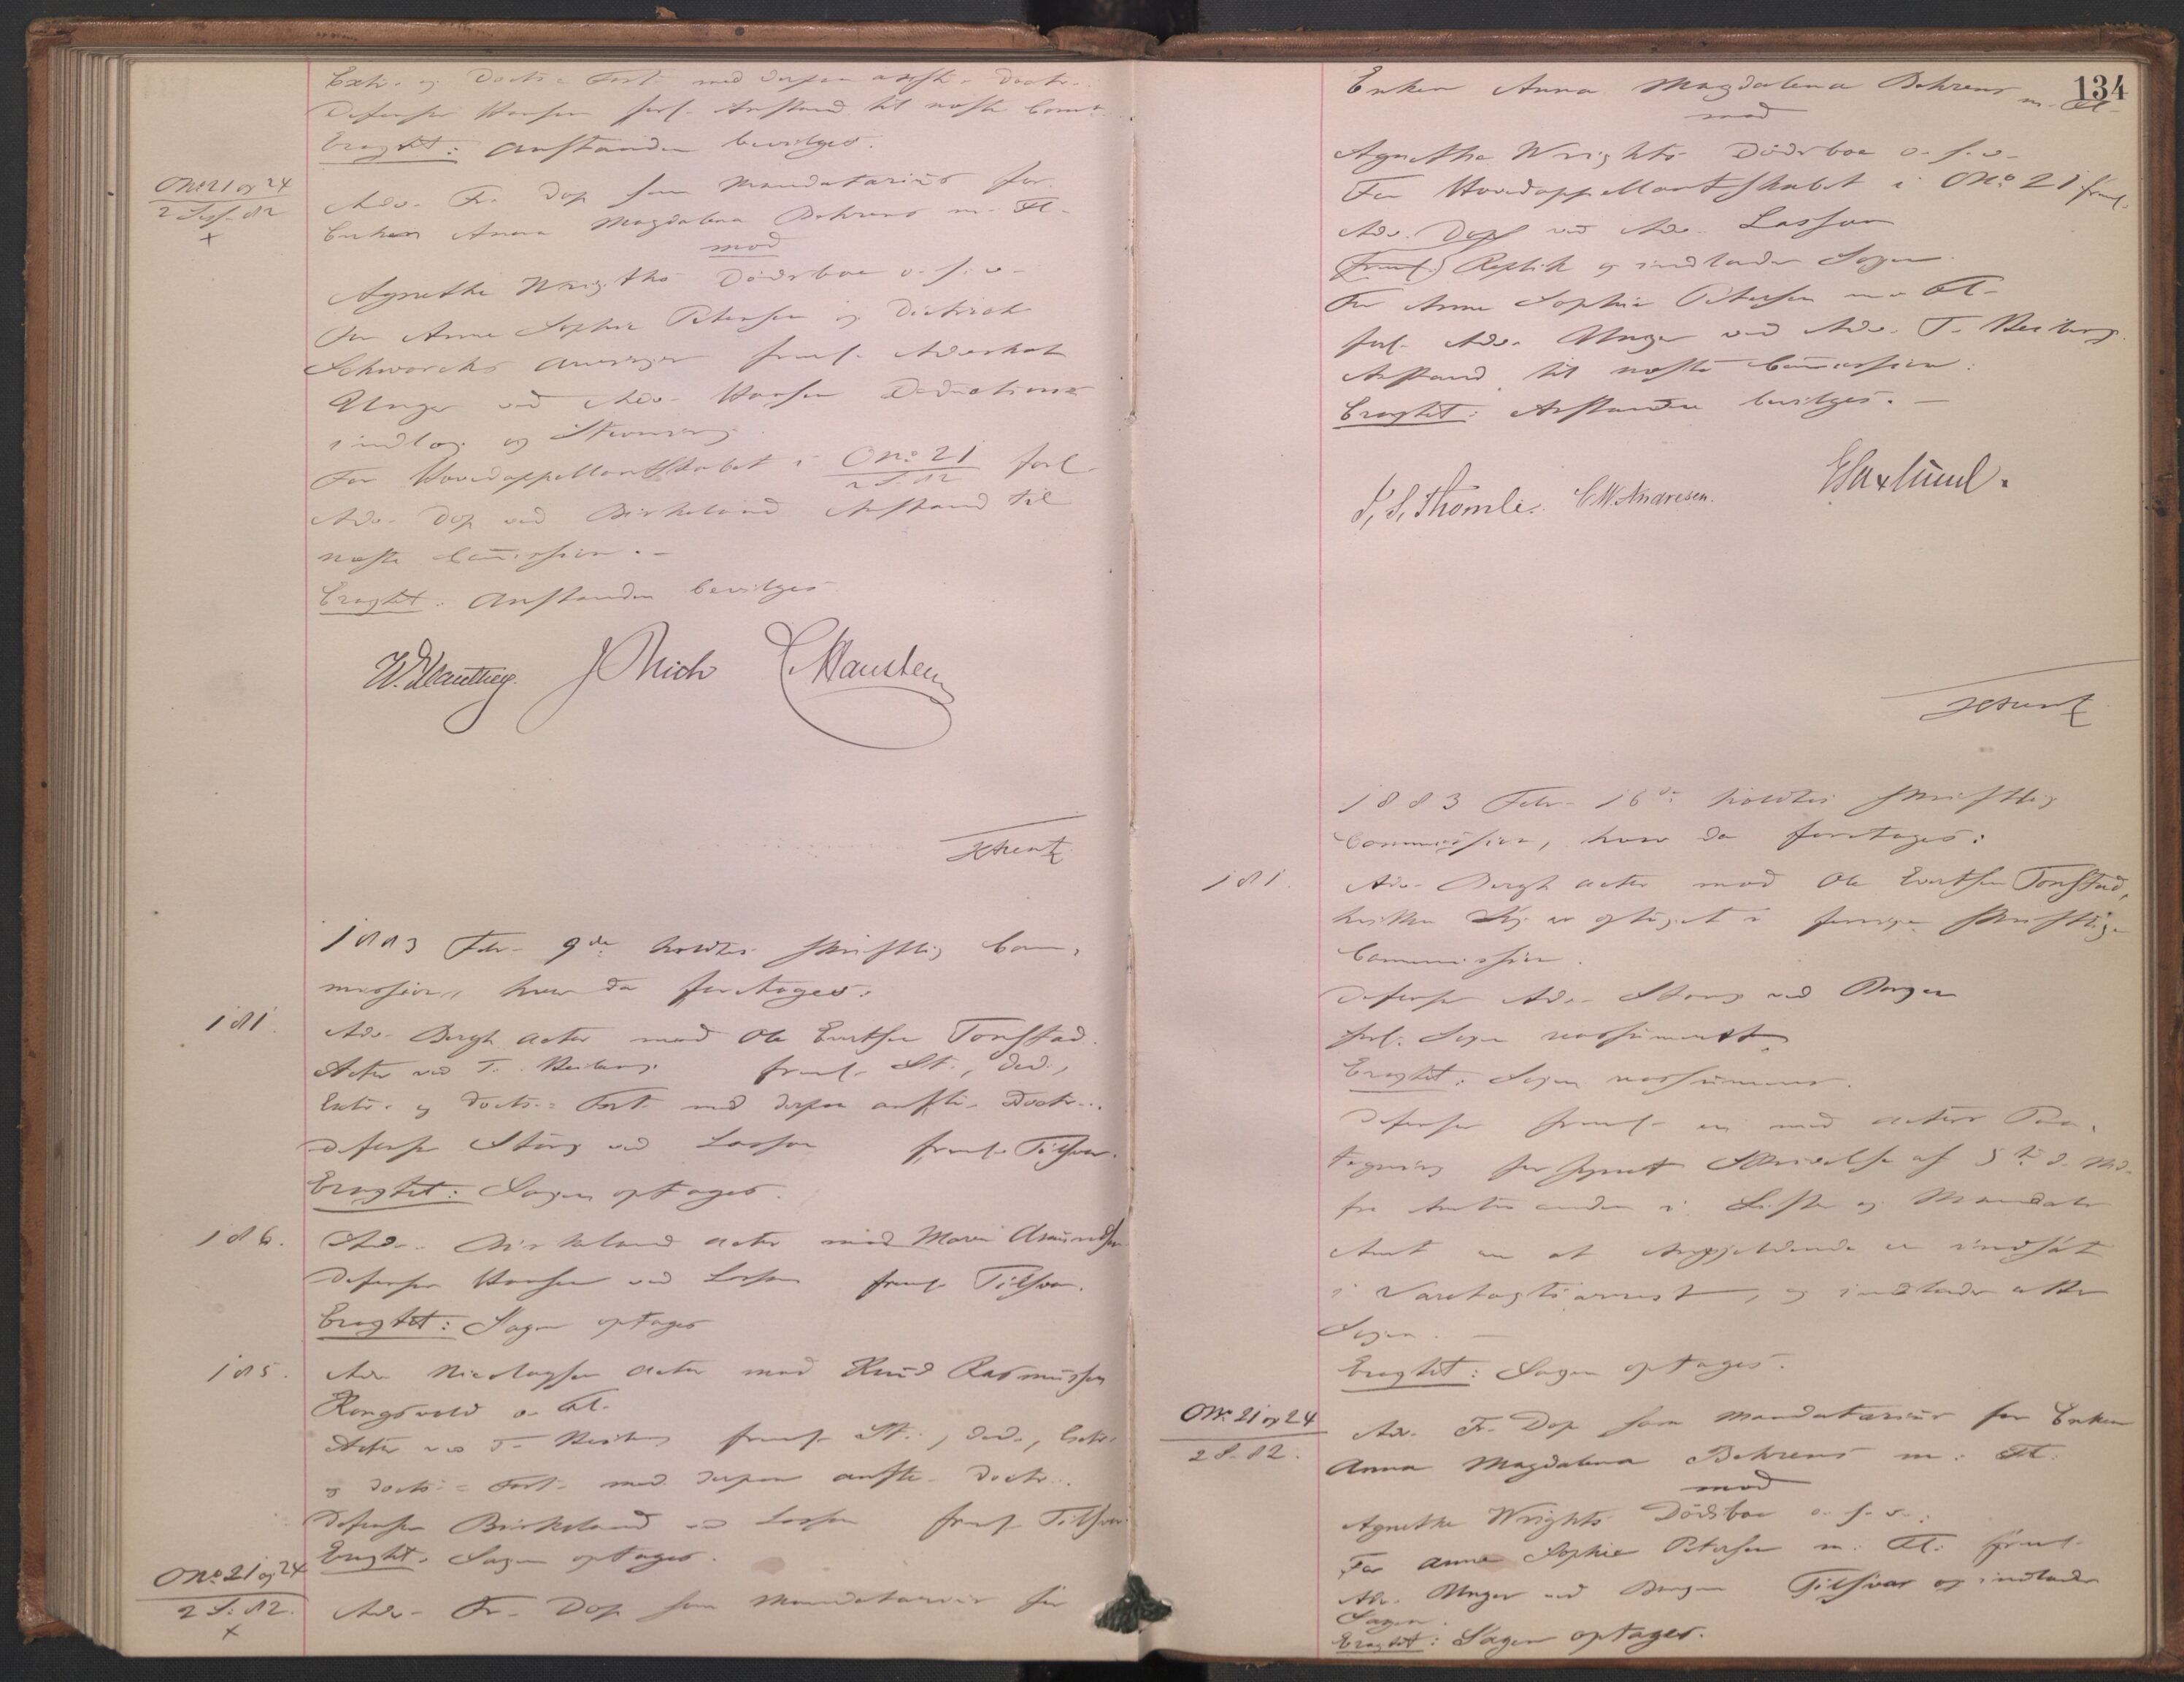 Extr. og Docts. Fort. med derpaa Doctr.
Defensor Hansen Anstand til næste Com.
Eragtet: Anstanden bevilges.
No. 21 og 24
2 S. 82
Adv. Fr. Dop som Mandatarius for
Enken Anna Magdalena Behrens m. Fl.
mod
Agnethe Wrigths Dödsboe o. s. v.
For Anne Sophie Petersen og Dietrich
Schworchs Arvinger freml. Advokat
Unger ved Adv. Hansen Deductions-
indlæg og Stevning
For Hovedappellantskabet i No. 21 forl.
2 S. 82
Adv. Dop ved Birkeland Anstand til
næste Commission. -
Eragtet: Anstanden bevilges
C. Hansteen
1883 Febr. 9de holdtes skriftlig Com-
mission, hvor da foretoges:
181.
Adv. Bergh actor mod Ole Evertsen Tonstad.
Actor ved T. freml. St., Ded.,
Extr. og Docts. Fort. med derpaa Doctr.
Defensor Stang ved Lasson freml. Tilsvar.
Eragtet: Sagen optages.
186.
Adv. Birkeland actor mod Maren
Defensor Hansen ved Lasson freml. Tilsvar.
Eragtet: Sagen optages
185.
Adv. Nicolaysen actor mod Knud Rasmussen
Kongsvold o. Fl.
Actor ved T. freml. St., Ded., Extr.
og Docts. Fort. med derpaa Doctr.
Defensor Birkeland ved Lasson freml. Tilsvar
Eragtet: Sagen optages.
No. 21 og 24
2 S. 82.
Adv. Fr. Dop som Mandatarius for
134
Enken Anna Magdalena Behrens m. Fl.
mod
Agnethe Wrights Dödsboe o. s. v.
For Hovedappellantskabet i No. 21 freml.
Adv. Dop ved Adv. Lasson
Replik og indlader Sagen.
For Anne Sophie Petersen m. Fl.
forl. Adv. Unger ved Adv. T.
Anstand til næste Commission.
Eragtet: Anstanden bevilges. -
Thomle. Andresen. E Saxlund.
1883 Febr. 16de holdtes skriftlig
Commission, hvor da foretoges:
181.
Adv. Bergh actor mod Ole Evertsen Tonstad,
hvilken Sag er optaget i forrige skriftlige
Commission.
Defensor Adv. Stang ved Berger
forl. Sagen reassumeret.
Eragtet: Sagen reassumeres.
Defensor freml. en med actors Paa-
tegning forsynet Skrivelse af 5te d. Md.
fra Amtmanden i Lister og Mandals
Amt om at Angjeldende er indsat
i Varetægtsarrest, og indlader atter
Sagen. -
Eragtet: Sagen optages.
No. 21 og 24
2 S. 82.
Adv. Fr. Dop som Mandatarius for Enken
Anna Magdalena Behrens m. Fl.
mod
Agnethe Wrights Dödsboe o. s. v.
For Anne Sophie Petersen m. Fl. freml.
Adv. Unger ved Berger Tilsvar og indlader
Sagen.
Eragtet: Sagen optages.